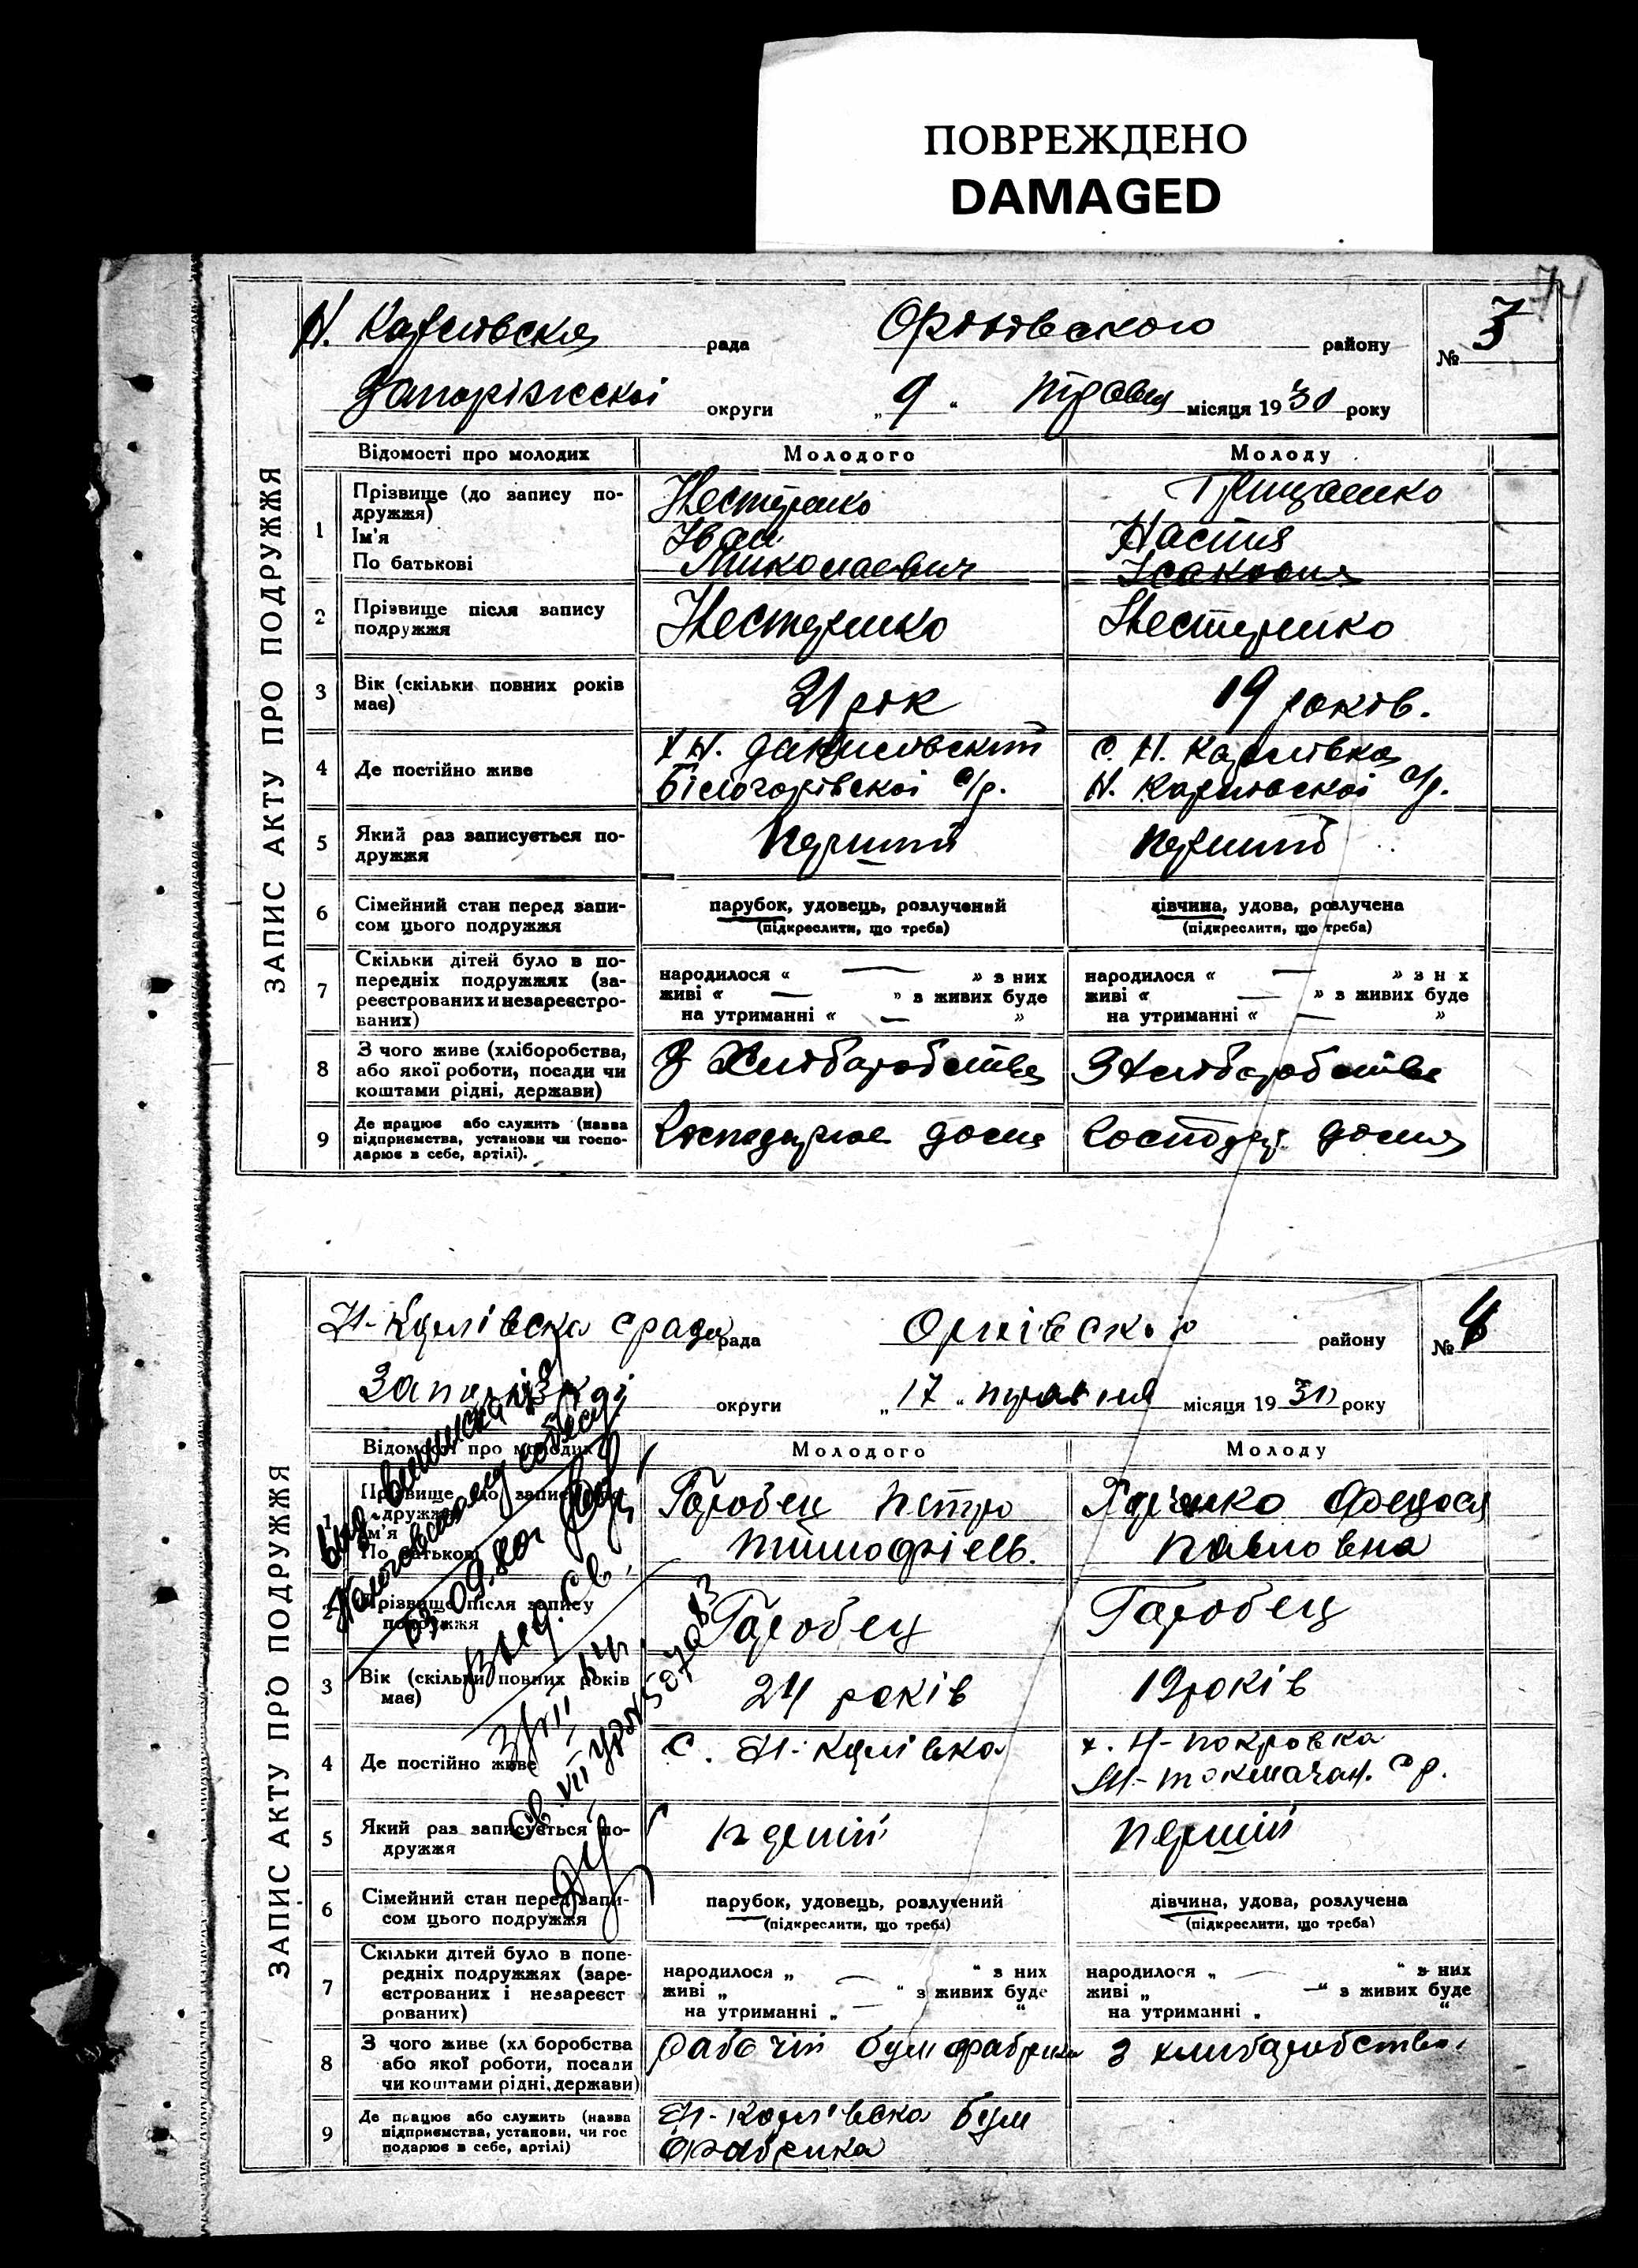 ПОВРЕЖДЕНО
DAMAGED
74
ЗАПИС АКТУ ПРО ПОДРУЖЖЯ
Н. Карлівська рада Оріхівського району № 3
Запоріжскоі округи „ 9 " травня місяця 1930 року
Відомості про молодих Молодого Молоду
1 Прізвище (до запису по-
дружжя)
Ім'я
По батькові
Нестеренко
Іван
Миколаевич
Грищенко
Настя
Ісаковна
2 Прізвище після запису
подружжя
Нестеренко Нестеренко
3 Вік (скільки повних років
має)
21 рік 19 років.
4 Де постійно живе
х Н. Данилівський
Білогорівскоі с/р.
с. Н. Карлівка
Н. Карлівскоі с/р.
5 Який раз записується по-
дружжя
Перший Перший
6 Сімейний стан перед запи-
сом цього подружжя
парубок, удовець, розлучений
(підкреслити, що треба)
дівчина, удова, розлучена
(підкреслити, що треба)
7 Скільки дітей було в по-
передніх подружжях (за-
реєстрованих и незареєстро-
ваних)
народилося « — » з них
живі « — » з живих буде
на утриманні « — »
народилося « — » з н х
живі « — » з живих буде
на утриманні « — »
8 З чого живе (хліборобства,
або якої роботи, посади чи
коштами рідні, держави)
З Хліборобства З Хліборобства
9 Де працює або служить (назва
підприємства, установи чи госпо-
дарює в себе, артілі).
Господарює дома Господар. дома
ЗАПИС АКТУ ПРО ПОДРУЖЖЯ
Н-Карлівска срада рада Оріхівского району № 4
округи „ 17 " травня місяця 1930 року
Відомості про молодих Молодого Молоду
1 Прізвище до запису
дружжя
Ім'я
По батькові
Горобец Петро
Тимофіев.
Федося
Павловна
2 Прізвище після запису
подружжя
Горобец Горобец
3 Вік (скільки повних років
має)
24 років 19 років
4 Де постійно живе
с. Н-Карлівка
х. Н-Покровка
М-Токмачан. с р.
5 Який раз записується по-
дружжя
Перший Перший
6 Сімейний стан перед запи-
сом цього подружжя
парубок, удовець, розлучений
(підкреслити, що треба)
дівчина, удова, розлучена
(підкреслити, що треба)
7 Скільки дітей було в попе-
редніх подружжях (заре-
єстрованих і незареєст
рованих)
народилося „ — " з них
живі „ " з живих буде
на утриманні „ — "
народилося „ — " з них
живі „ —" з живих буде
на утриманні „ "
8 З чого живе (хл боробства
або якої роботи, посади
чи коштами рідні, держави)
рабочій бум фабрики з хліборобства
9 Де працює або служить (назва
підприємства, установи, чи гос
подарює в себе, артілі)
Н-Карлівска бум
фабрика